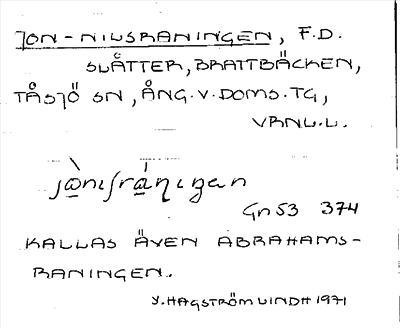 JON-NILSRANINGEN, F.D.
SLÅTTER, BRATTBÄCKEN,
TÅSJÖ SN, ÅNG. V. DOMS. TG,
VRNL.L.
Gn 53 374
KALLAS ÄVEN ABRAHAMS-
RANINGEN.
Y. HAGSTRÖM LINDH 1971